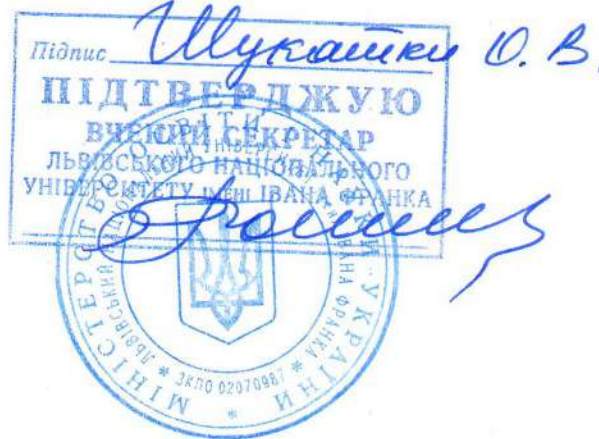 Підпис Шукатки О. В.
ПІДТВЕРДЖУЮ
ВЧЕНИЙ СЕКРЕТАР
ЛЬВІВСЬКОГО НАЦІОНАЛЬНОГО
УНІВЕРСИТЕТУ імені ІВАНА ФРАНКА
МІНІСТЕРСТВО ОСВІТИ І НАУКИ УКРАЇНИ *
ЛЬВІВСЬКИЙ НАЦІОНАЛЬНИЙ УНІВЕРСИТЕТ ІМЕНІ ІВАНА ФРАНКА
* ЗКПО 02070987 *